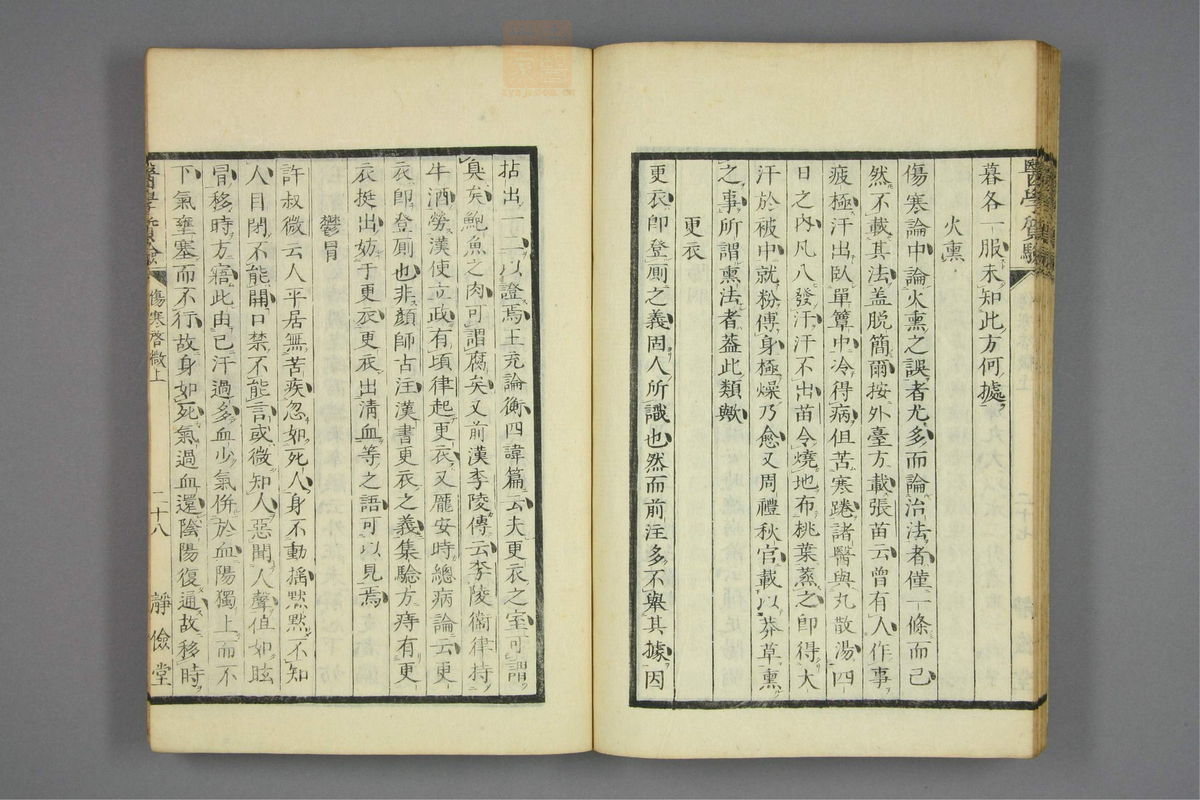 暮各一服未知此方何據
火熏
傷寒論中論火熏之誤者尤多而論治法者僅一條而已
然不載其法盖脫簡爾按外臺方載張苗云曾有人作事
疲極汗出臥單簟中冷得病但苦寒踡諸醫與丸散湯四
日之內凡八發汗汗不出苗令燒地布桃葉蒸之即得大
汗於被中就粉傅身極燥乃愈又周禮秋官載以莽草熏
之事所謂熏法者葢此類歟
更衣
更衣即登厠之義固人所識也然而前注多不舉其據因
拈出一二以證焉王充論衡四諱篇云夫更衣之室可謂
臭矣鮑魚之肉可謂腐矣又前漢李陵傳云李陵衞律持
牛酒勞漢使立政有頃律起更衣又龐安時總病論云更
衣即登厠也非顏師古注漢書更衣之義集驗方痔有更
衣挺出妨于更衣更衣出清血等之語可以見焉
鬱冒
許叔微云人平居無苦疾忽如死人身不動搖默默不知
人目閉不能開口禁不能言或微知人惡聞人聲值如眩
冒移時方寤此由已汗過多血少氣併於血陽獨上而不
下氣壅塞而不行故身如死氣過血還陰陽復通故移時
醫學質驗
傷寒啓微上
二十八
靜儉堂